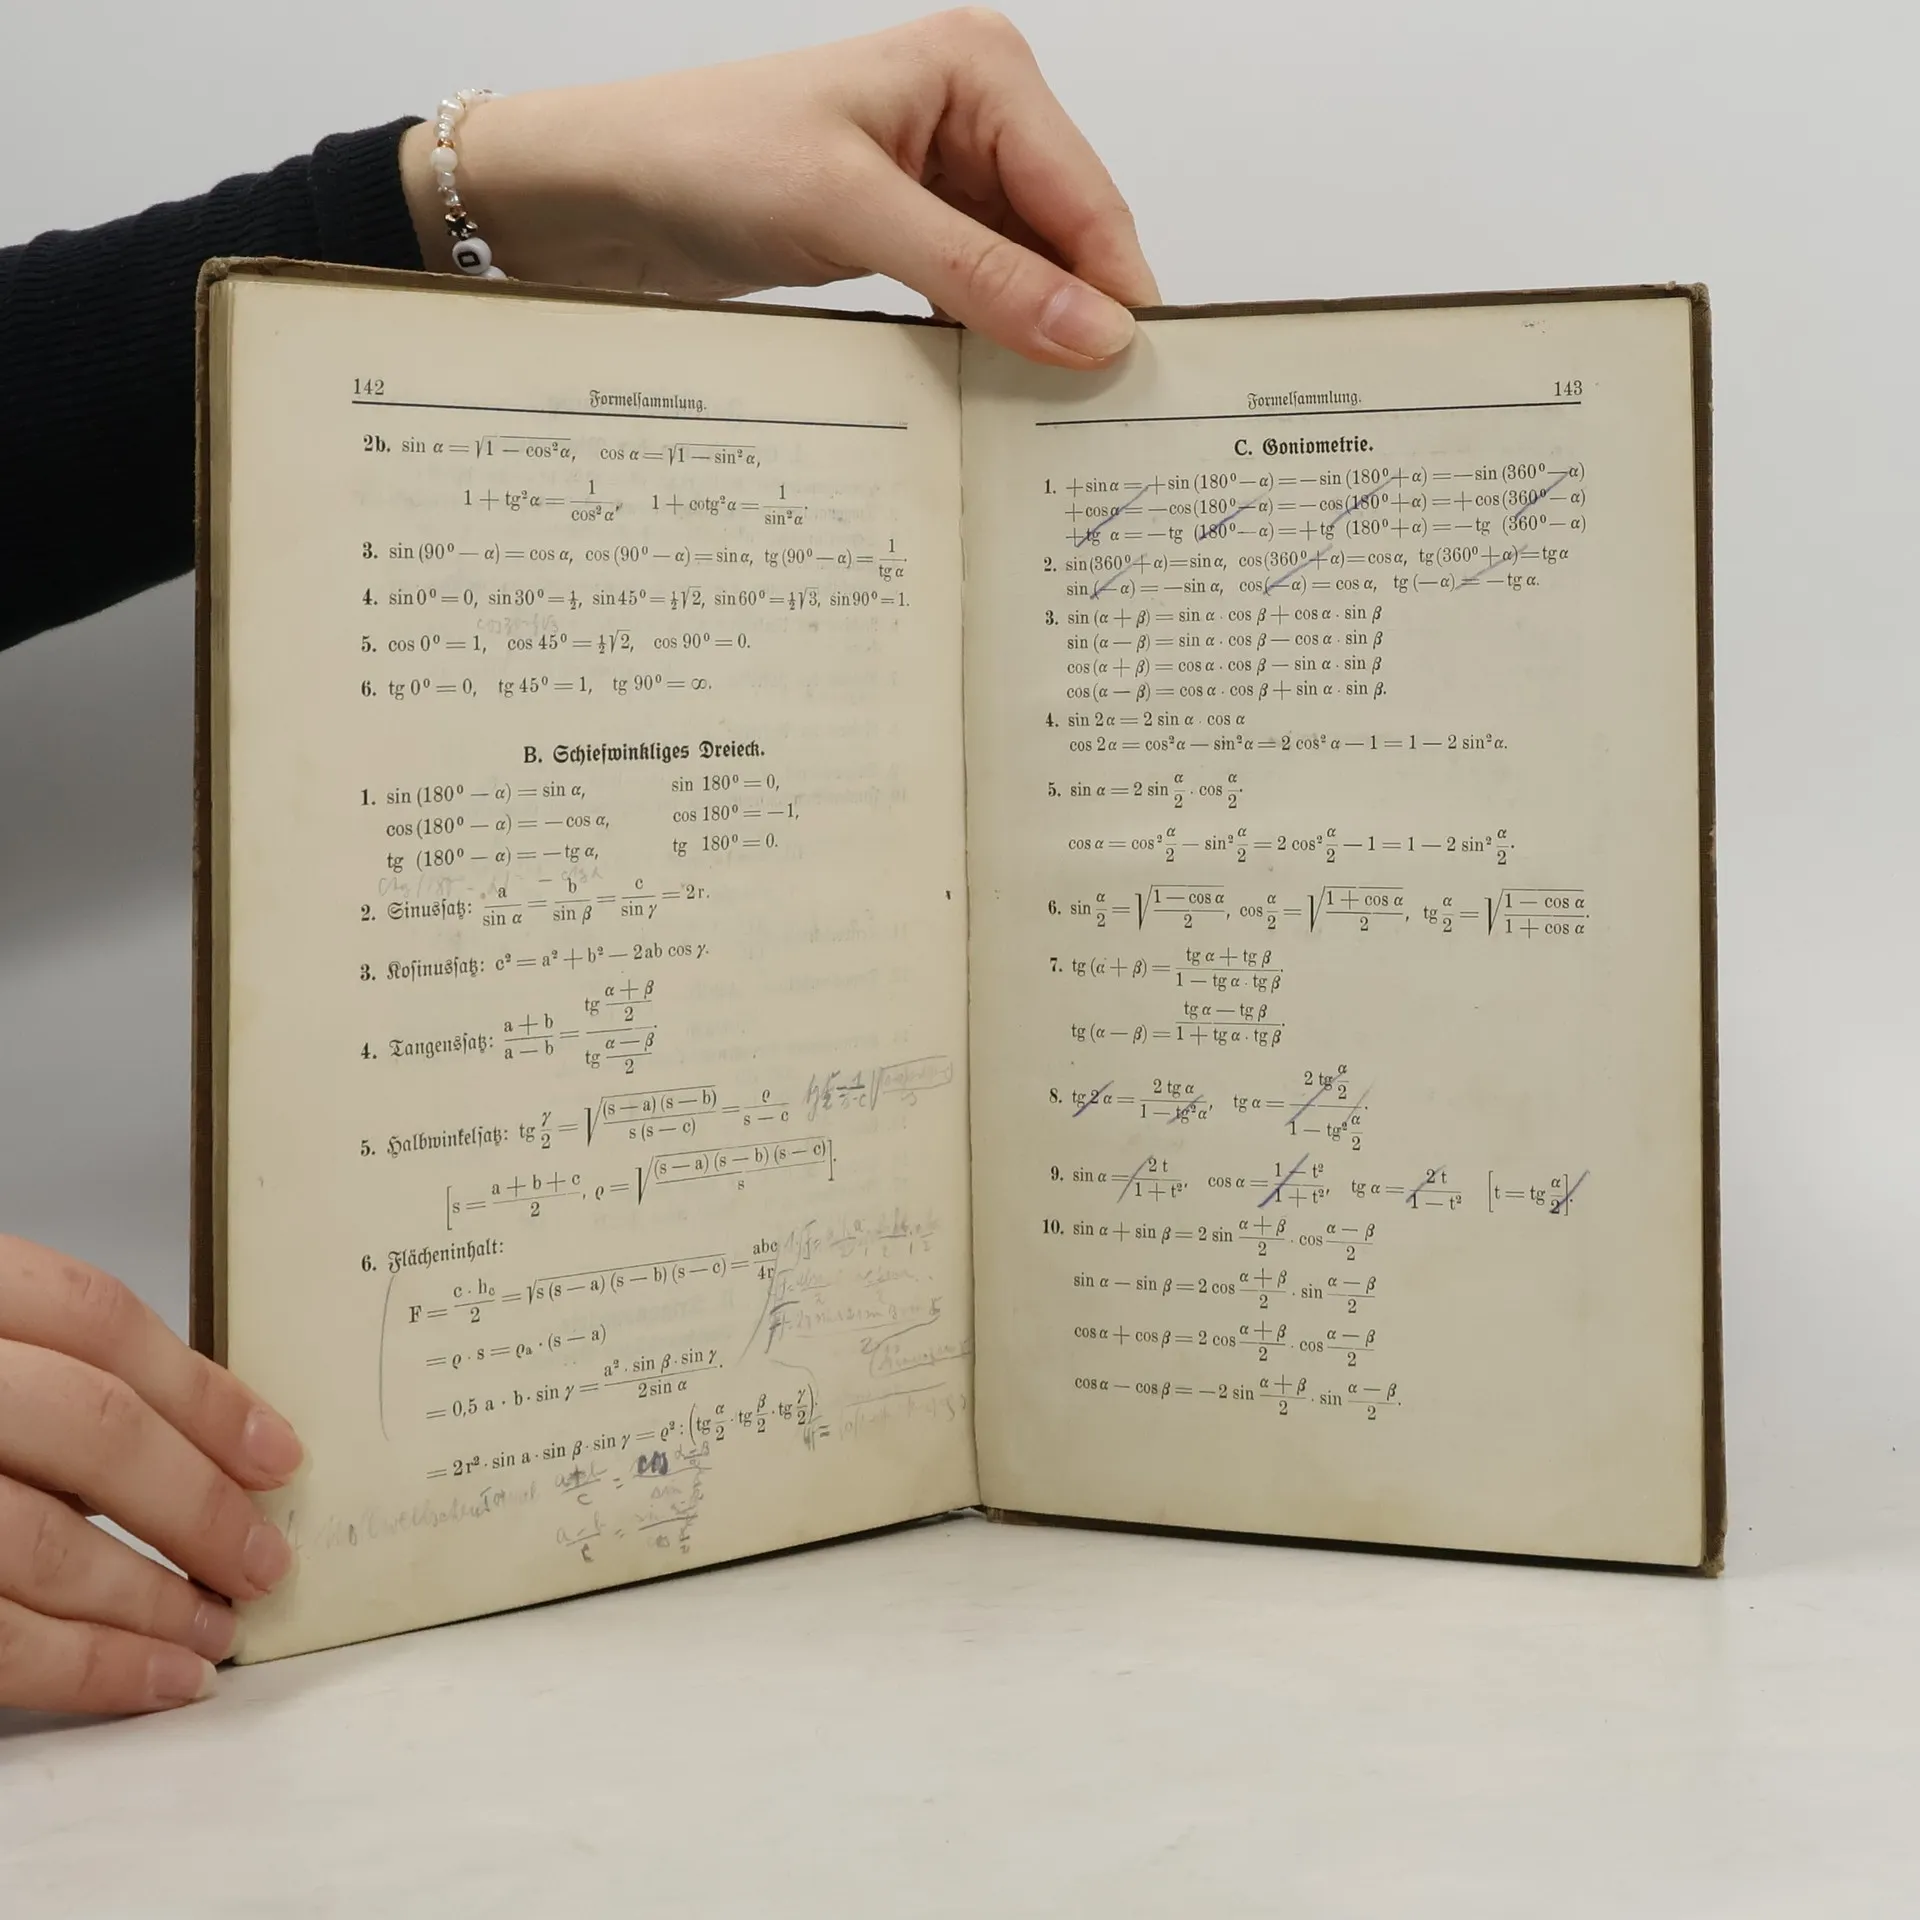 142
Formelsammlung.
2b. sin α = √(1 — cos²α), cos α = √(1 — sin²α),
1 + tg²α = 1/cos²α, 1 + cotg²α = 1/sin²α.
3. sin (90⁰ — α) = cos α, cos (90⁰ — α) = sin α, tg (90⁰ — α) = 1/tg α.
4. sin 0⁰ = 0, sin 30⁰ = ½, sin 45⁰ = ½√2, sin 60⁰ = ½√3, sin 90⁰ = 1.
5. cos 0⁰ = 1, cos 45⁰ = ½√2, cos 90⁰ = 0.
6. tg 0⁰ = 0, tg 45⁰ = 1, tg 90⁰ = ∞.
B. Schiefwinkliges Dreieck.
1. sin (180⁰ — α) = sin α, sin 180⁰ = 0,
cos (180⁰ — α) = — cos α, cos 180⁰ = —1,
tg (180⁰ — α) = — tg α, tg 180⁰ = 0.
2. Sinussatz: a/sin α = b/sin β = c/sin γ = 2r.
3. Kosinussatz: c² = a² + b² — 2ab cos γ.
4. Tangenssatz: (a + b)/(a — b) = tg (α + β)/2 / tg (α — β)/2.
5. Halbwinkelsatz: tg γ/2 = √((s — a) (s — b)/s (s — c)) = ϱ/(s — c)
[s = (a + b + c)/2, ϱ = √((s — a) (s — b) (s — c)/s)].
6. Flächeninhalt:
F = c · hc/2 = √(s (s — a) (s — b) (s — c)) = abc/4r
= ϱ · s = ϱa · (s — a)
= 0,5 a · b · sin γ = a² · sin β · sin γ/2 sin α.
= 2r² · sin a · sin β · sin γ = ϱ² : (tg α/2 · tg β/2 · tg γ/2).
143
Formelsammlung.
C. Goniometrie.
1. + sin α = + sin (180⁰ — α) = — sin (180⁰ + α) = — sin (360⁰ — α)
+ cos α = — cos (180⁰ — α) = — cos (180⁰ + α) = + cos (360⁰ — α)
+ tg α = — tg (180⁰ — α) = + tg (180⁰ + α) = — tg (360⁰ — α)
2. sin (360⁰ + α) = sin α, cos (360⁰ + α) = cos α, tg (360⁰ + α) = tg α
sin (— α) = — sin α, cos (— α) = cos α, tg (— α) = — tg α.
3. sin (α + β) = sin α · cos β + cos α · sin β
sin (α — β) = sin α · cos β — cos α · sin β
cos (α + β) = cos α · cos β — sin α · sin β
cos (α — β) = cos α · cos β + sin α · sin β.
4. sin 2α = 2 sin α · cos α
cos 2α = cos²α — sin²α = 2 cos²α — 1 = 1 — 2 sin²α.
5. sin α = 2 sin α/2 · cos α/2.
cos α = cos² α/2 — sin² α/2 = 2 cos² α/2 — 1 = 1 — 2 sin² α/2.
6. sin α/2 = √((1 — cos α)/2), cos α/2 = √((1 + cos α)/2), tg α/2 = √((1 — cos α)/(1 + cos α)).
7. tg (α + β) = (tg α + tg β)/(1 — tg α · tg β).
tg (α — β) = (tg α — tg β)/(1 + tg α · tg β).
8. tg 2α = 2 tg α/(1 — tg²α), tg α = 2 tg α/2 / (1 — tg² α/2).
9. sin α = 2t/(1 + t²), cos α = (1 — t²)/(1 + t²), tg α = 2t/(1 — t²) [t = tg α/2].
10. sin α + sin β = 2 sin (α + β)/2 · cos (α — β)/2
sin α — sin β = 2 cos (α + β)/2 · sin (α — β)/2
cos α + cos β = 2 cos (α + β)/2 · cos (α — β)/2
cos α — cos β = — 2 sin (α + β)/2 · sin (α — β)/2.